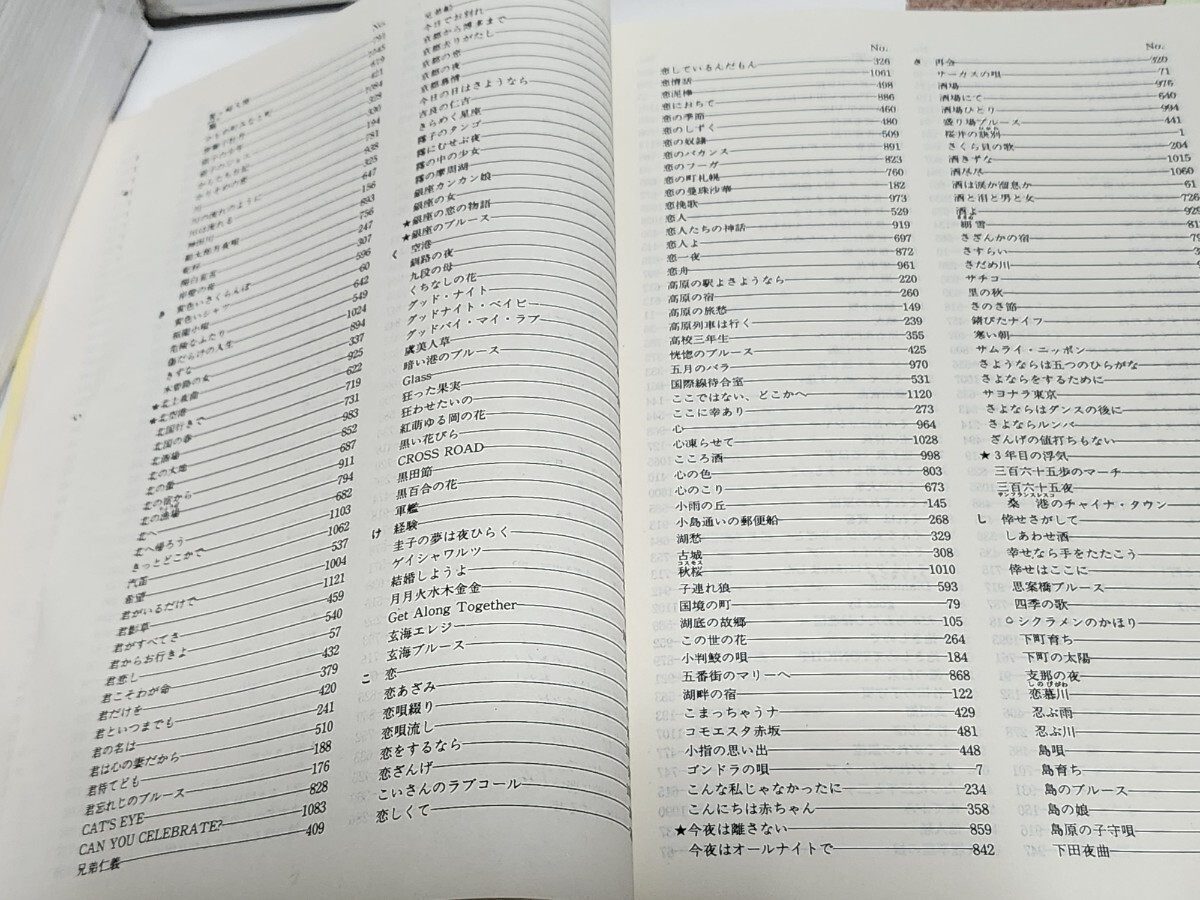 No.
川の流れのように 938
川は流れる 325
神田川 647
勘太郎月夜唄 156
乾杯 893
関白宣言 756
岸壁の母 247
き 黄色いさくらんぼ 307
黄色いシャツ 596
祇園小唄 60
危険なふたり 642
傷だらけの人生 549
きずな 1024
木曽路の女 894
★北上夜曲 337
★北空港 925
北国行きで 622
北国の春 719
北酒場 731
北の大地 983
北の蛍 852
北の宿から 687
北の漁場 911
北へ 794
北へ帰ろう 682
きっとどこかで 1103
汽笛 1062
希望 537
君がいるだけで 1004
君影草 1121
君がすべてさ 459
君からお行きよ 540
君恋し 57
君こそわが命 432
君だけを 379
君といつまでも 420
君の名は 241
君は心の妻だから 510
君待てども 188
君忘れじのブルース 176
CAT'S EYE 828
CAN YOU CELEBRATE? 1083
兄弟仁義 409
兄弟船
今日でお別れ
京都から博多まで
京都去りがたし
京都の恋
京都の夜
京都慕情
今日の日はさようなら
吉良の仁吉
きらめく星座
霧子のタンゴ
霧にむせぶ夜
霧の中の少女
霧の摩周湖
銀座カンカン娘
銀座の女
★銀座の恋の物語
★銀座のブルース
く 空港
釧路の夜
九段の母
くちなしの花
グッド・ナイト
グッドナイト・ベイビー
グッドバイ・マイ・ラブ
虞美人草
暗い港のブルース
Glass
狂った果実
狂わせたいの
紅萌ゆる岡の花
黒い花びら
CROSS ROAD
黒田節
黒百合の花
軍艦
け 経験
圭子の夢は夜ひらく
ゲイシャワルツ
結婚しようよ
月月火水木金金
Get Along Together
玄海エレジー
玄海ブルース
こ 恋
恋あざみ
恋唄綴り
恋唄流し
恋をするなら
恋ざんげ
こいさんのラブコール
恋しくて
No.
恋しているんだもん 326
恋情話 1061
恋泥棒 498
恋におちて 886
恋の季節 460
恋のしずく 480
恋の奴隷 509
恋のバカンス 891
恋のフーガ 823
恋の町札幌 760
恋の曼珠沙華 182
恋挽歌 973
恋人 529
恋人たちの神話 919
恋人よ 697
恋一夜 872
恋舟 961
高原の駅よさようなら 220
高原の宿 260
高原の旅愁 149
高原列車は行く 239
高校三年生 355
恍惚のブルース 425
五月のバラ 970
国際線待合室 531
ここではない、どこかへ 1120
ここに幸あり 273
心 964
心凍らせて 1028
こころ酒 998
心の色 803
心のこり 673
小雨の丘 145
小島通いの郵便船 268
湖愁 329
古城 308
秋桜 コスモス 1010
子連れ狼 593
国境の町 79
湖底の故郷 105
この世の花 264
小判鮫の唄 184
五番街のマリーへ 868
湖畔の宿 122
こまっちゃうナ 429
コモエスタ赤坂 481
小指の思い出 448
ゴンドラの唄 7
こんな私じゃなかったに 234
こんにちは赤ちゃん 358
★今夜は離さない 859
今夜はオールナイトで 842
No.
さ 再会 320
サーカスの唄 71
酒場 975
酒場にて 640
酒場ひとり 994
盛り場ブルース 441
桜井の訣別 1
さくら貝の歌 204
酒きずな 1015
酒尽尽 1060
酒は涙か溜息か 61
酒と泪と男と女 726
酒よ 929
細雪
さざんかの宿
さすらい
さだめ川
サチコ
里の秋
さのさ節
錆びたナイフ
寒い朝
サムライ・ニッポン
さようならは五つのひらがな
さよならをするために
サヨナラ東京
さよならはダンスの後に
さよならルンバ
ざんげの値打ちもない
★3年目の浮気
三百六十五歩のマーチ
三百六十五夜
桑港のチャイナ・タウン サンフランシスコ
し 倖せさがして
しあわせ酒
幸せなら手をたたこう
倖せはここに
思案橋ブルース
四季の歌
○シクラメンのかほり
下町育ち
下町の太陽
支那の夜
恋慕川 しのびがわ
忍ぶ雨
忍ぶ川
島唄
島育ち
島のブルース
島の娘
島原の子守唄
下田夜曲